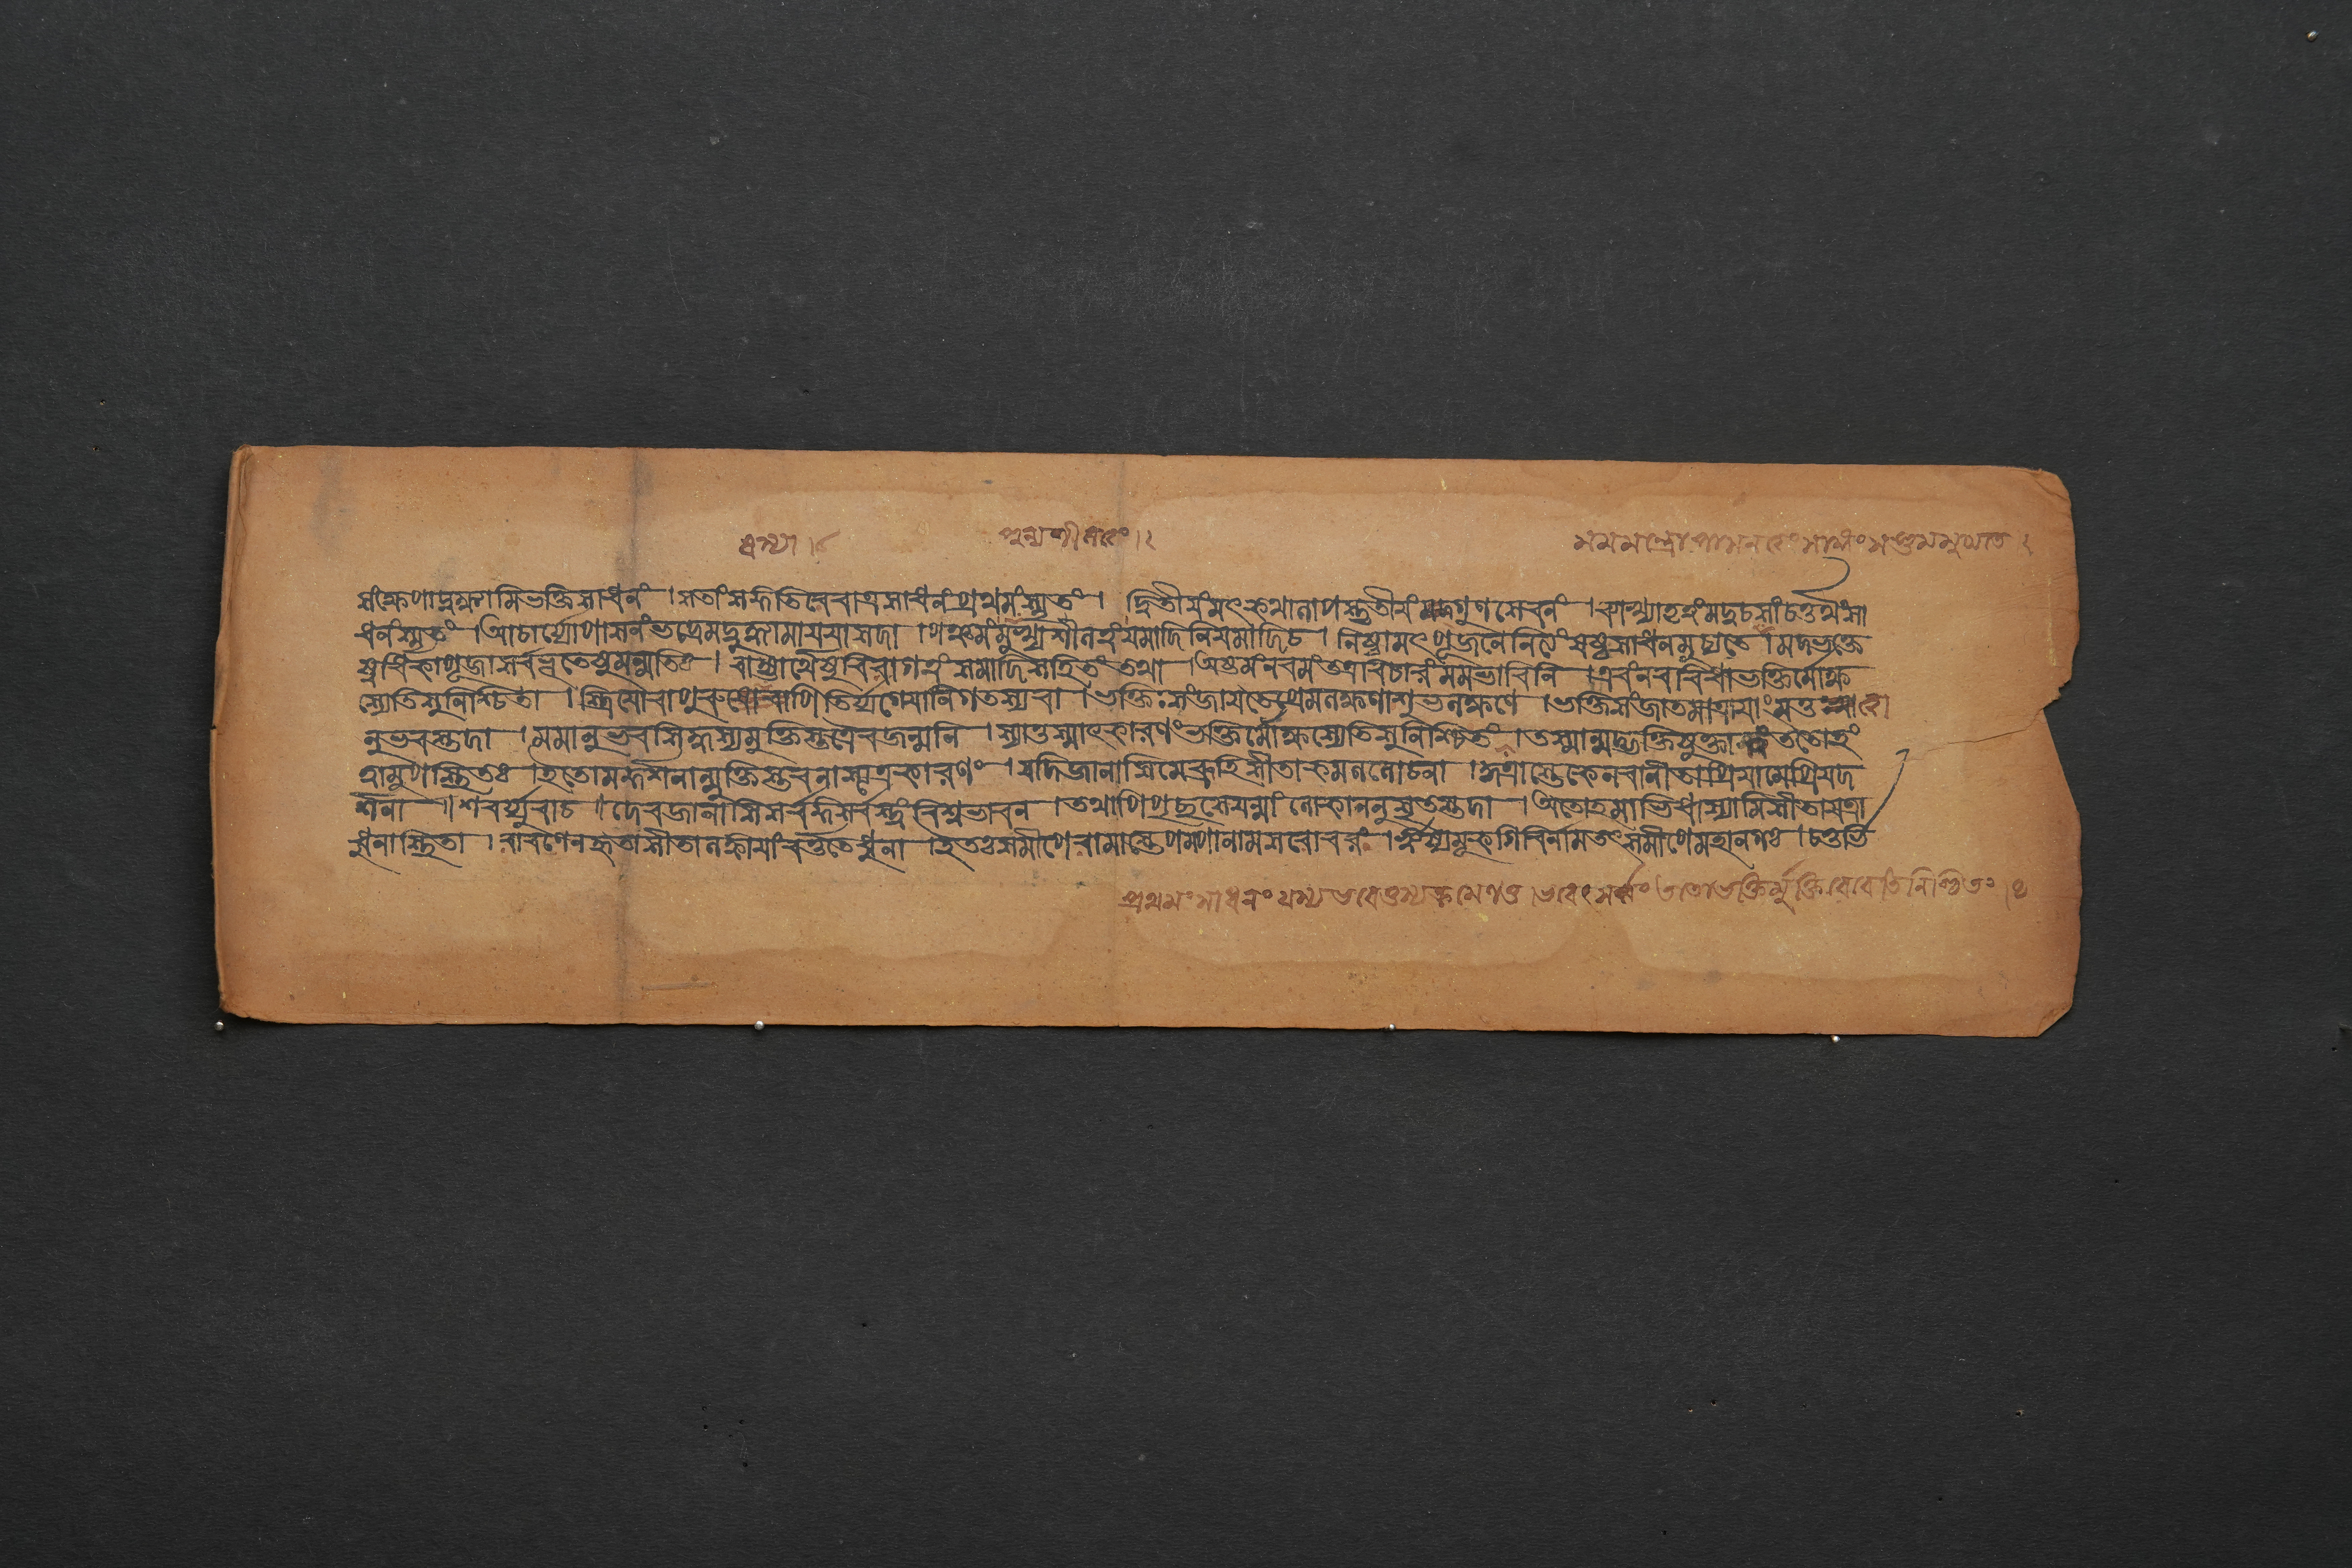 পুণ্যশীলত্বং । ২
মমমন্ত্রোপাসকত্বংসাঙ্গংসপ্তমমুচ্যতে ২
সংক্ষেপাদ্বক্ষ্যামিভক্তিসাধনং । সতাংসঙ্গতিরেবাত্রসাধনংপ্রথমংস্মৃতং । দ্বিতীয়ংমৎকথালাপস্তৃতীয়ংমদ্গুণসেবনং । ব্যাখ্যাতৃত্বংমদ্বচসাংচতুর্থংসা
ধনংস্মৃতং । আচার্য্যোপাসনংভদ্রেমদ্বুদ্ধ্যামায়য়াসদা । পঞ্চমংপুণ্যশীলত্বংযমাদিনিয়মাদিচ । নিষ্ঠামৎপূজনেনিত্যংষষ্ঠসাধনমুচ্যতে । মদ্ভক্তে
ষ্বধিকাপূজাসর্বভূতেষুমন্মতিঃ । বাহ্যার্থেষুবিরাগত্বংশমাদিসহিতংতথা । অষ্টমংনবমংতত্ত্ববিচারংমমভাবিনি । এবংনববিধাভক্তির্মোক্ষ
স্যেতিসুনিশ্চিতা । স্ত্রিয়োবাপুরুষোবাপিতির্য্যগ্যোনিগতস্যবা । ভক্তিঃসংজায়তেপ্রেমলক্ষণাশুভলক্ষণে । ভক্তিসংজাতমাত্রায়াংমত্তত্ত্বা
নুভবস্তদা । মমানুভবসিদ্ধস্যমুক্তিস্তত্রৈবজন্মনি । স্যাত্তস্মাৎকারণংভক্তির্মোক্ষস্যেতিসুনিশ্চিতং । তস্মান্মদ্ভক্তিযুক্তাত্বংততোহং
ত্বামুপাস্থিতঃ । ইতোমদ্দর্শনান্মুক্তিস্তবনাস্ত্যত্রকারণং । যদিজানাসিমেব্রূহিসীতাকমললোচনা । কুত্রাস্তেকেনবানীতাপ্রিয়ামেপ্রিয়দ
র্শনা ॥ শবর্য্যুবাচ ॥ দেবজানাসিসর্বজ্ঞসর্বংত্বংবিশ্বভাবন । তথাপিপৃচ্ছসেযন্মাংলোকাননুসৃতস্তদা । অতোহমাভিধাস্যামিসীতাযত্রা
ধুনাস্থিতা । রাবণেনহৃতাসীতালঙ্কায়াংবর্ত্ততেধুনা । ইতঃসমীপেরামাস্তেপম্পানামসরোবরং । ঋষ্যমূকগিরির্নামতৎসমীপেমহানগঃ । চতুর্ভি
প্রথমংসাধনংযস্যভবেত্তস্যক্রমেণতু । ভবেৎসর্ব্বংততোভক্তির্মুক্তিরেবেতিনিশ্চিতং